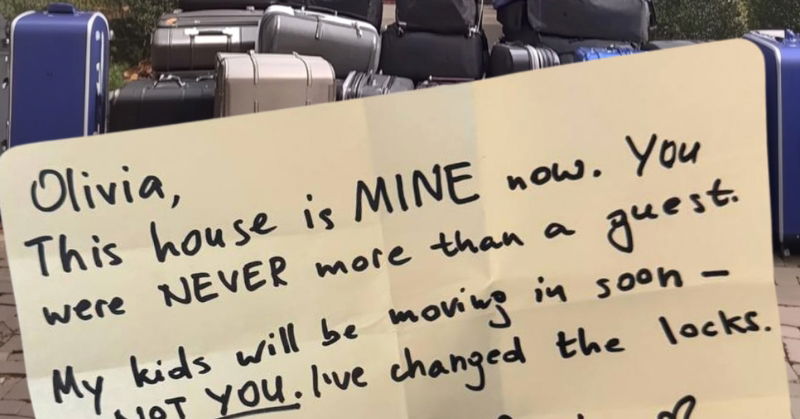 Olivia,
This house is MINE now. You
were NEVER more than a guest.
My kids will be moving in soon –
NOT YOU. I've changed the locks.